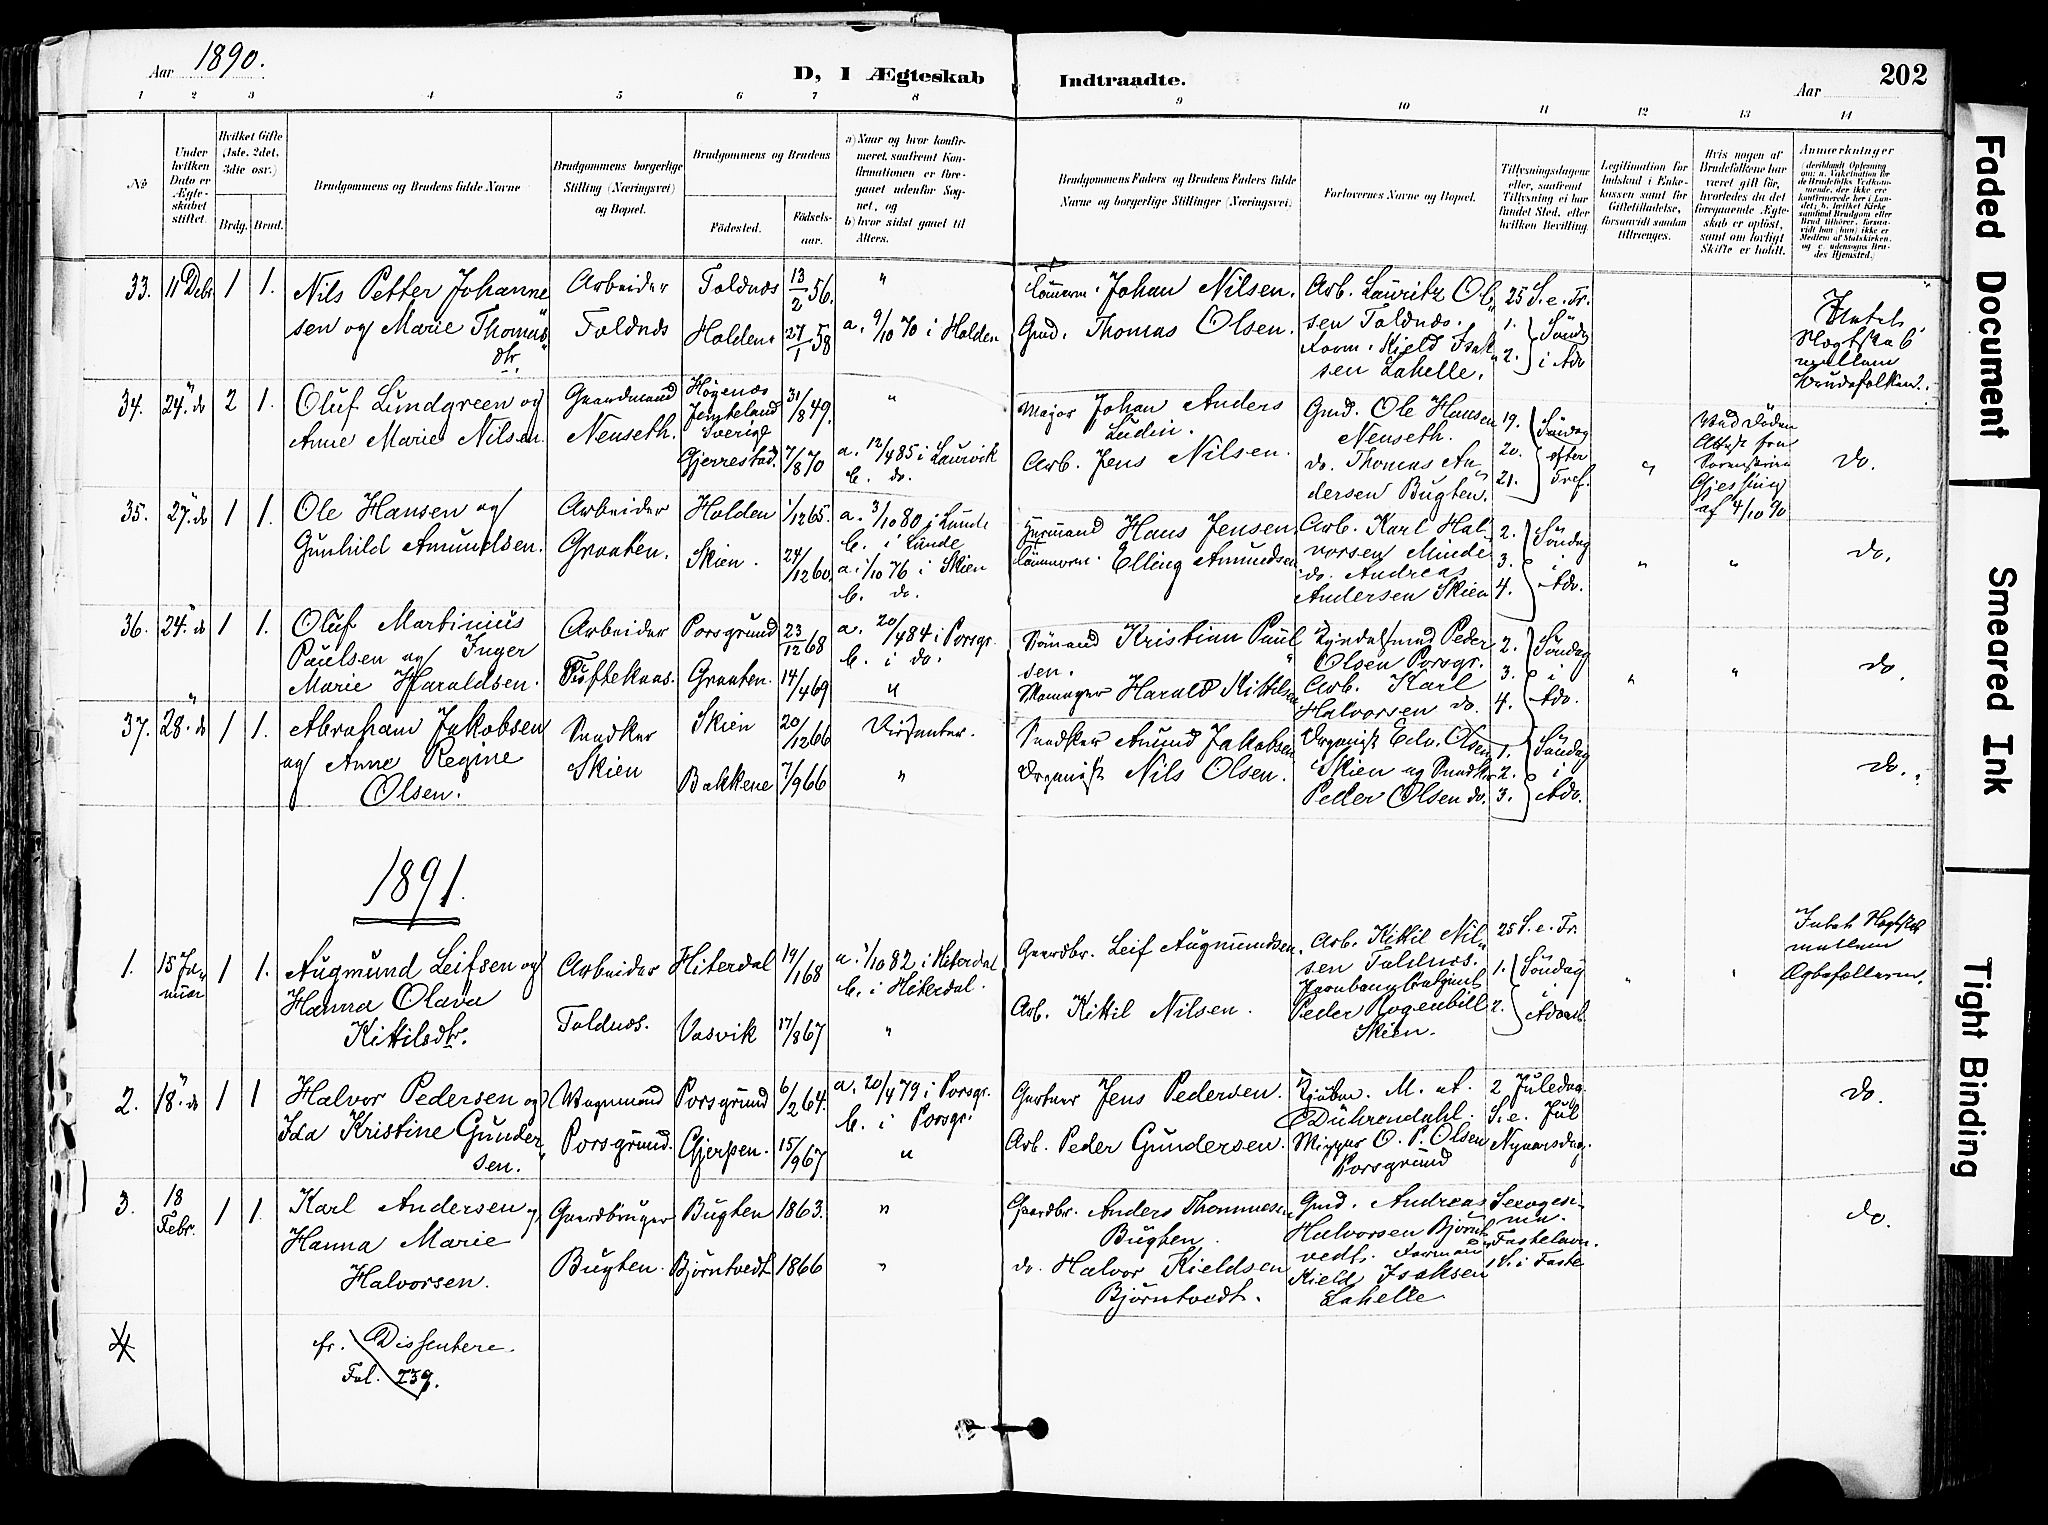 Aar 1890.
D, I Ægteskab Indtraadte.
Aar 202
1 2 3 4 5 6 7 8 9 10 11 12 13 14
No
Under hvilken Dato er Ægteskabet stiftet.
Hvilket Gifte (1ste, 2det, 3die osv.)
Brdg. Brud.
Brudgommens og Brudens fulde Navne
Brudgommens borgerlige Stilling (Næringsvei) og Bopæl.
Brudgommens og Brudens
Fødested.
Fødselsaar.
a) Naar og hvor konfirmeret, saafremt Konfirmationen er foregaaet udenfor Sognet, og
b) hvor sidst gaaet til Alters.
Brudgommens Faders og Brudens Faders fulde Navne og borgerlige Stillinger (Næringsvei)
Forlovernes Navne og Bopæl.
Tillysningsdagene eller, saafremt Tillysning ei har fundet Sted, efter hvilken Bevilling.
Legitimation for Indskud i Enkekassen samt for Giftetilladelse, forsaavidt saadan tiltrænges.
Hvis nogen af Brudefolkene har været gift før, hvorledes da det foregaaende Ægteskab er opløst, samt om lovligt Skifte er holdt.
Anmærkninger
33. 11 Debr 1 1.
Nils Petter Johanne
sen og Marie Thomas
dtr.
Arbeider
Toldnæs
Toldnæs 13/2 56. "
Holden 27/1 58 a. 9/10 70 i Holden
Johan Nilsen.
Gmd. Thomas Olsen.
Arb. Lauritz Ol
sen Toldnæs.
Kjeld Isak
sen Lahelle.
25 S. e. Tr.
1. Søndg
2. i Adv
Slægtskab
mellem
Brudefolkene.
34. 24. do 2 1.
Oluf Lundgreen og
Anne Marie Nilsen
Gaardmand
Nenseth.
Høgenæs
Jemteland
Sverige 31/8 49. "
Gjerrestad. 7/8 70 a. 12/4 85 i Laurvik
b. do.
Major Johan Anders
Ludin.
Arb. Jens Nilsen.
Gmd. Ole Hansen
Nenseth.
do. Thomas An
dersen Bugten.
19. Søndag
20. efter
21. Tref.
"
Ved Døden
Attest fra
Sorenskriver
Gjessing
af 4/10 90
do.
35. 27. do 1 1.
Ole Hansen og
Gunhild Amundsen.
Arbeider
Graaten.
Holden 1/12 65. a. 3/10 80 i Lunde
b. i Lunde
Skien. 24/12 60. a. 1/10 76 i Skien
b. do.
Hans Jensen.
Elling Amundsen
Arb. Karl Hal
vorsen Minde
do. Andreas
Andersen Skien
2. Søndag
3. i
4. Adv.
" "
do.
36. 24. do 1 1.
Oluf Martinius
Paulsen og Inger
Marie Haraldsen.
Arbeider
Tuftekaas.
Porsgrund 23/12 68 a. 20/4 84 i Porsgr.
b. i do.
Graaten. 14/4 69 "
Sømand Kristian Paul
sen.
Skomager Harald Kittilsen
Peder
Olsen Porsgr.
Arb. Karl
Halvorsen do.
2. Søndag
3. i
4. Adv.
" "
do.
37. 28. do 1 1.
Abraham Jakobsen
og Anne Regine
Olsen.
Snedker
Skien
Skien 20/12 66 Dissenter.
Bakkene 7/9 66 "
Snedker Amund Jakobsen
Organist Nils Olsen.
Organist Edv. Olsen
Skien og Snedker
Peder Olsen do.
1. Søndag
2. i
3. Adv.
do.
1891.
1. 15 Ja
nuar 1 1.
Augmund Leifsen og
Hanna Olava
Kittilsdtr.
Arbeider
Toldnæs.
Hiterdal 19/1 68 a. 1/10 82 i Hiterdal
b. i Hiterdal.
Vasvik 17/8 67 "
Gaardbr. Leif Augmundsen.
Arb. Kittil Nilsen.
Arb. Kittil Nil
sen Toldnæs.
Peder Rogenbill
Skien.
25 S. e. Tr.
1. Søndag
i
2. Advent
" "
Intet Slægtskab
mellem
Ægtefolkene.
2. 18. do 1 1
Halvor Pedersen og
Ida Kristine Gunder
sen.
Vognmand
Porsgrund.
Porsgrund 6/2 64. a. 20/4 79 i Porsgr.
b. i Porsgr.
Gjerpen. 15/9 67 "
Gartner Jens Pedersen.
Arb. Peder Gundersen.
Kjøbm. M. A.
Dührendahl.
O. P. Olsen
Porsgrund
2 Juledag.
S. e. Jul
Nyaarsdag.
do.
3. 18
Febr. 1 1.
Karl Andersen og
Hanna Marie
Halvorsen.
Gaardbruger
Bugten.
Bugten 1863. "
Bjørntvedt 1866 "
Gaardbr. Anders Thommesen
Bugten.
do. Halvor Kjeldsen
Bjørntvedt.
Gmd. Andreas
Halvorsen Bjørnt
vedt.
Kjeld Isaksen
Lahelle
Sexagesi
ma.
Fastelavn.
1 S. i Faste
do.
4
cfr. Dissentere.
Fol. 239.
Faded Document
Smeared Ink
Tight Binding